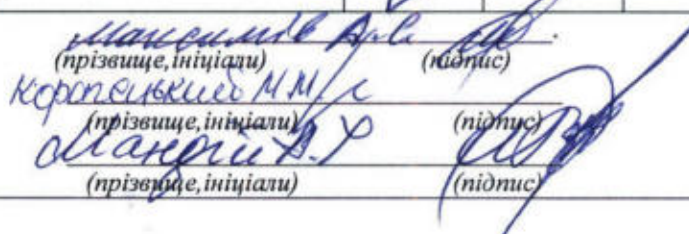 Максимів А.С.
(прізвище, ініціали) (підпис)
Коропецький М.М.
(прізвище, ініціали) (підпис)
Мандій В.Х
(прізвище, ініціали) (підпис)